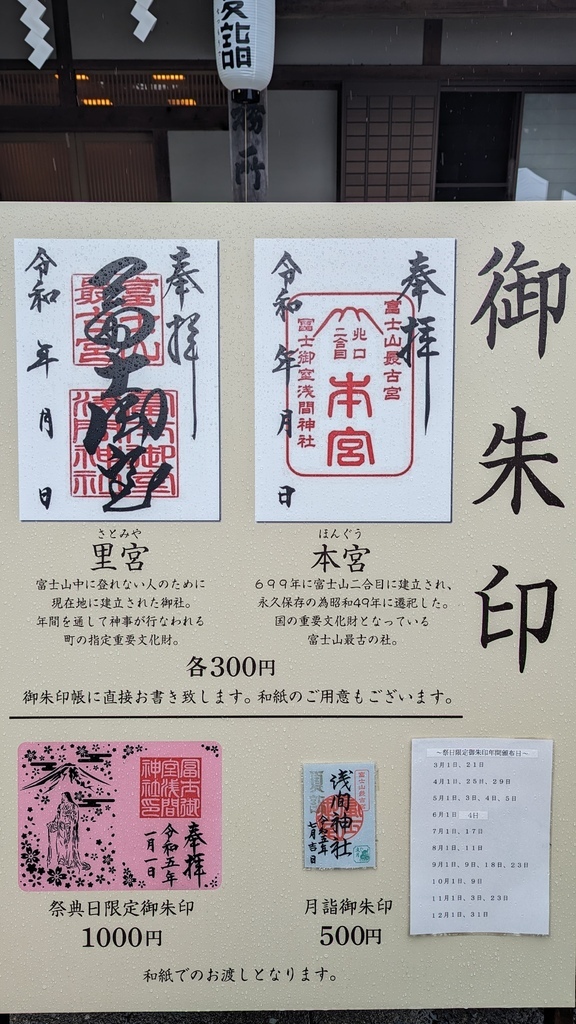 御朱印
奉拝
令和 年 月 日
奉拝
富士山最古宮
北口
二合目
本宮
富士御室浅間神社
令和 年 月 日
さとみや
里宮
富士山中に登れない人のために
現在地に建立された御社。
年間を通して神事が行なわれる
町の指定重要文化財。
ほんぐう
本宮
699年に富士山二合目に建立され、
永久保存の為昭和49年に遷祀した。
国の重要文化財となっている
富士山最古の社。
各300円
御朱印帳に直接お書き致します。和紙のご用意もございます。
奉拝
令和五年
一月一日
祭典日限定御朱印
1000円
浅間神社
令和五年
七月吉日
月詣御朱印
500円
～祭日限定御朱印年間頒布日～
3月1日、21日
4月1日、25日、29日
5月1日、3日、4日、5日
6月1日 4日
7月1日、17日
8月1日、11日
9月1日、9日、18日、23日
10月1日、9日
11月1日、3日、23日
12月1日、31日
和紙でのお渡しとなります。